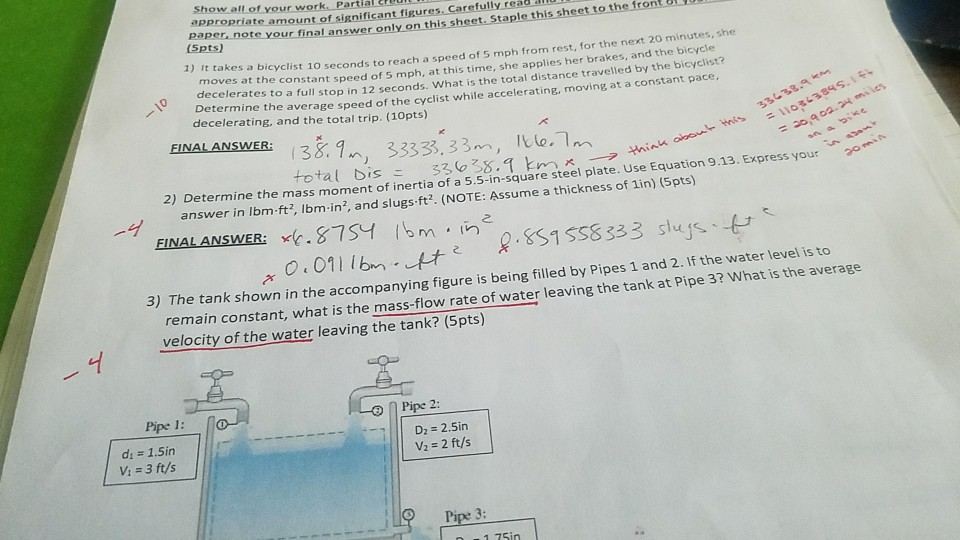 Show all of your work. Partial
appropriate amount of significant figures. Carefully read
paper, note your final answer only on this sheet. Staple this sheet to the front of
(5pts)
1) It takes a bicyclist 10 seconds to reach a speed of 5 mph from rest, for the next 20 minutes, she
moves at the constant speed of 5 mph, at this time, she applies her brakes, and the bicycle
decelerates to a full stop in 12 seconds. What is the total distance travelled by the bicyclist?
Determine the average speed of the cyclist while accelerating, moving at a constant pace,
decelerating, and the total trip. (10pts)
-10
33638.9 km
= 110,363,845.1 ft
= 20,902.24 miles
on a bike
in about
20 min
think about this
FINAL ANSWER: 138.9m, 33333.33m, 166.7m
total Dis = 33638.9 km x
2) Determine the mass moment of inertia of a 5.5-in-square steel plate. Use Equation 9.13. Express your
answer in lbm·ft², lbm·in², and slugs·ft². (NOTE: Assume a thickness of 1in) (5pts)
-4
FINAL ANSWER: x6.8754 lbm·in² 0.859558333 slugs·ft²
x 0.091 lbm·ft²
3) The tank shown in the accompanying figure is being filled by Pipes 1 and 2. If the water level is to
remain constant, what is the mass-flow rate of water leaving the tank at Pipe 3? What is the average
velocity of the water leaving the tank? (5pts)
-4
Pipe 1:
d₁ = 1.5in
V₁ = 3 ft/s
1
2
Pipe 2:
D₂ = 2.5in
V₂ = 2 ft/s
3
Pipe 3:
= 1.75in